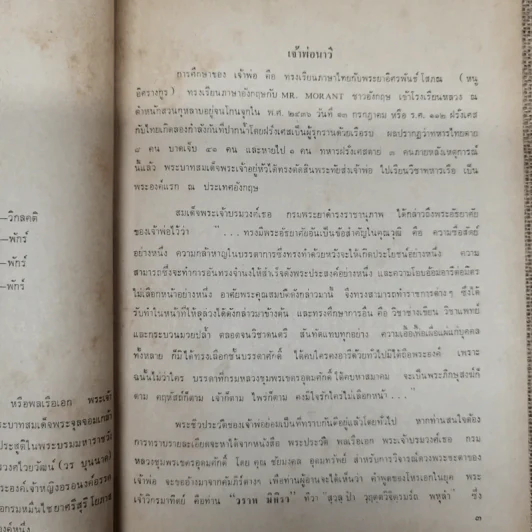 เจ้าพ่อนาวี
การศึกษาของ เจ้าพ่อ คือ ทรงเรียนภาษาไทยกับพระยาอิศรพันธ์ โสภณ ( หนู
อิศรางกูร) ทรงเรียนภาษาอังกฤษกับ MR. MORANT ชาวอังกฤษ เข้าโรงเรียนหลวง ณ
ตำหนักสวนกุหลาบอยู่จนโกนจุกใน พ.ศ. ๒๔๓๖ วันที่ ๑๓ กรกฎาคม หรือ ร.ศ. ๑๑๒ ฝรั่งเศส
กับไทยเกิดลองกำลังกันที่ปากน้ำโดยฝรั่งเศสเป็นผู้รุกรานด้วยเรือรบ ผลปรากฏว่าทหารไทยตาย
๘ คน บาดเจ็บ ๔๑ คน และหายไป ๑ คน ทหารฝรั่งเศสตาย ๓ คนภายหลังเหตุการณ์
นี้แล้ว พระบาทสมเด็จพระเจ้าอยู่หัวได้ทรงตัดสินพระทัยส่งเจ้าพ่อ ไปเรียนวิชาทหารเรือ เป็น
พระองค์แรก ณ ประเทศอังกฤษ
สมเด็จพระเจ้าบรมวงศ์เธอ กรมพระยาดำรงราชานุภาพ ได้กล่าวถึงพระอัธยาศัย
ของเจ้าพ่อไว้ว่า " ... ทรงมีพระอัธยาศัยอันเป็นข้อสำคัญในคุณวุฒิ คือ ความซื่อสัตย์
อย่างหนึ่ง ความกล้าหาญในบรรดาการซึ่งทรงทำด้วยหวังจะให้เกิดประโยชน์อย่างหนึ่ง ความ
สามารถซึ่งจะทำการอันทรงจำนงให้สำเร็จดังพระประสงค์อย่างหนึ่ง และความโอบอ้อมอารีต่อมิตร
ไม่เลือกหน้าอย่างหนึ่ง อาศัยพระคุณสมบัติดังกล่าวมานี้ จึงทรงสามารถทำราชการต่าง ๆ ซึ่งได้
รับทำในหน้าที่ให้ลุล่วงได้ดังกล่าวมาข้างต้น และทรงศึกษาการอื่น คือ วิชาช่างเขียน วิชาแพทย์
และกระบวนมวยปล้ำ ตลอดจนวิชาดนตรี สันทัดแทบทุกอย่าง ความเอื้อเฟื้อเผื่อแผ่แก่บุคคล
ทั้งหลาย ก็มิได้ทรงเลือกชั้นบรรดาศักดิ์ ได้คบใครคงอารีด้วยทั่วไปไม่ได้ถือพระองค์ เพราะ
ฉนั้นไม่ว่าใคร บรรดาที่กรมหลวงชุมพรเขตรอุดมศักดิ์ ได้คบหาสมาคม จะเป็นพระภิกษุสงฆ์ก็
ตาม คฤหัสถ์ก็ตาม เจ้าก็ตาม ไพร่ก็ตาม คงมีใจรักใคร่ไม่เลือกหน้า ... "
พระชีวประวัติของเจ้าพ่อย่อมเป็นที่ทราบกันดีอยู่แล้วโดยทั่วไป หากท่านสนใจต้อง
การทราบรายละเอียดจะหาได้จากหนังสือ พระประวัติ พลเรือเอก พระเจ้าบรมวงศ์เธอ กรม
หลวงชุมพรเขตรอุดมศักดิ์ โดย คุณ ชัยมงคล อุดมทรัพย์ สำหรับการวิจารณ์ดวงพระชะตาของ
เจ้าพ่อ จะขออ้างมาจากคัมภีร์ต่างๆ เพื่อท่านผู้อ่านจะได้เห็นว่า คำพูดของโหรเอกในยุค พระ
เจ้าวิกรมาทิตย์ คือท่าน "วราห มิหิรา" ที่ว่า
๓
–วิกลคติ
–พักร์
–พักร์
–พักร์
หรือพลเรือเอก พระเจ้า
ระบาทสมเด็จพระจุลจอมเกล้า
ประสูติในพระบรมมหาราชวัง
วงศ์ไวยวัฒน์ (วร บุนนาค)